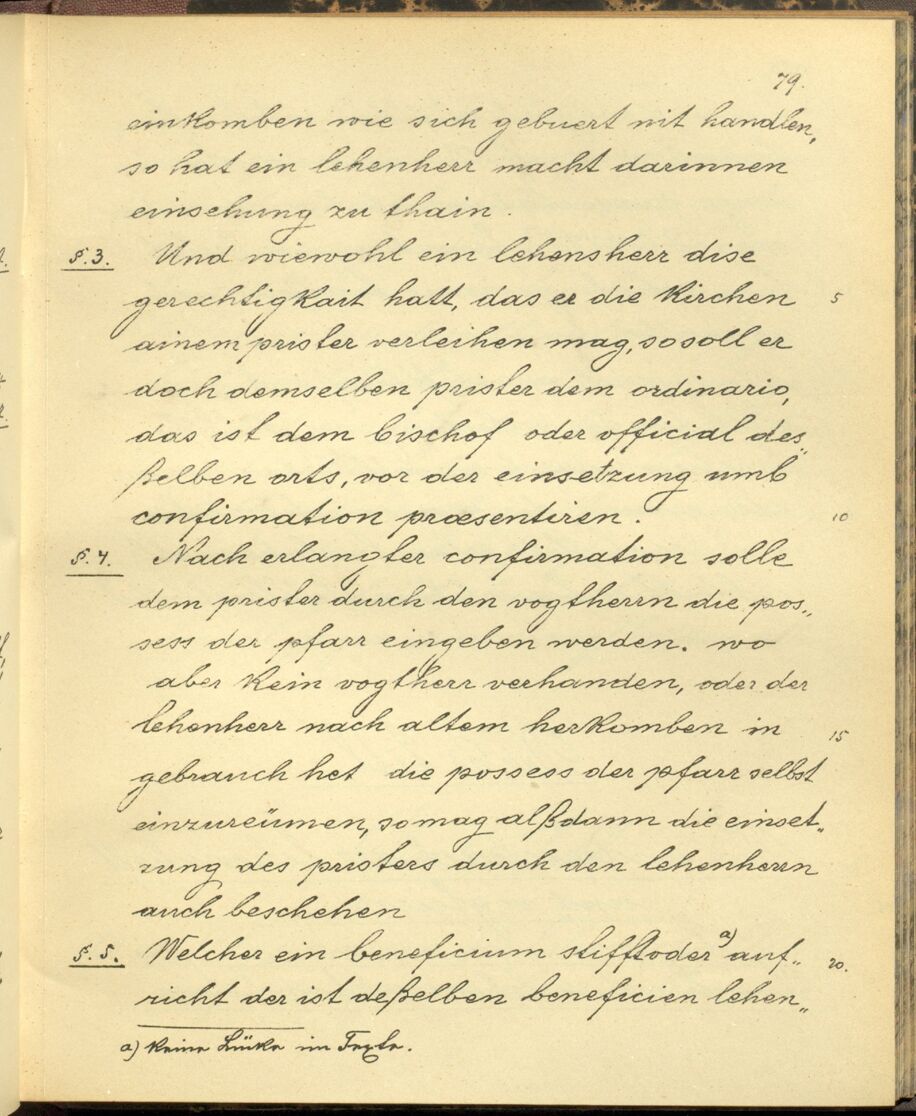 79.
einkomben wie sich gebuert nit handlen,
so hat ein lehenherr macht darinnen
einsehung zu thain.
§.3. Und wiewohl ein lehensherr dise
gerechtigkait hatt, das er die kirchen 5
ainem prister verleihen mag, so soll er
doch demselben prister dem ordinario,
das ist dem bischof oder official des„
ßelben orts, vor der einsetzung umb
confirmation præsentiren. 10
§.4. Nach erlangter confirmation solle
dem prister durch den vogtherrn die pos„
sess der pfarr eingeben werden. wo
aber kein vogtherr verhanden, oder der
lehenherr nach altem herkomben in 15
gebrauch het die possess der pfarr selbst
einzureümen, so mag alßdann die einset„
zung des pristers durch den lehenherrn
auch beschehen
§.5. Welcher ein beneficium stifft oder a) auf„ 20.
richt der ist deßelben beneficien lehen„
a) Keine Lücke im Texte.